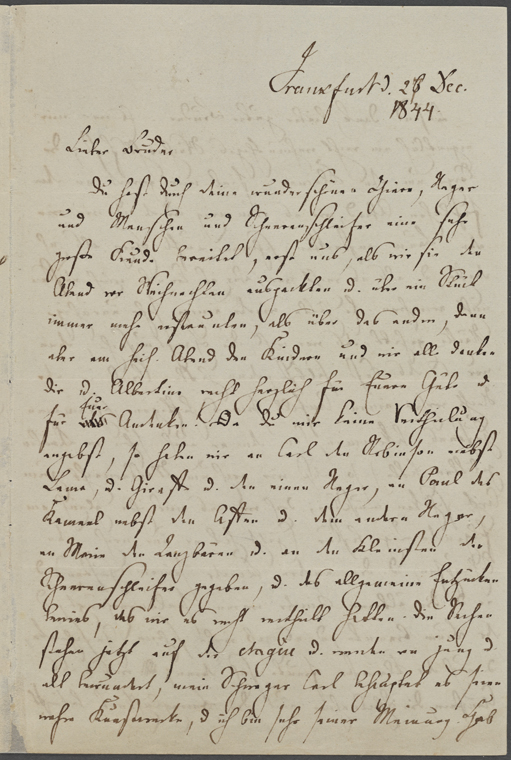 Frankfurt d. 28 Dec.
1844.
Lieber Bruder
Du hast durch deine wunderschönen Thiere, Neger
und Menschen und Scheerenschleifer eine sehr
große Freude bereitet, erst uns, als wir sie den
Abend vor Weihnachten auspackten u. über ein Stück
immer mehr erstaunten, als über das andere, dann
aber am heil. Abend den Kindern und wir alle danken
dir u. Albertine recht herzlich für Eure Güte u
für Euer Andenken. Da du mir keine Vertheilung
angabst, so haben wir an Carl den Robinson nebst
Lama, d. Giraffe u. den einen Neger, an Paul das
Kameel nebst den Affen u. dem andern Neger,
an Marie den Tanzbären u. an den Kleinsten den
Scheerenschleifer gegeben, u. das allgemeine Entzücken
bewies, daß wir es recht vertheilt hatten. Die Sachen
stehen jetzt auf der etagère u. werden von jung u
alt bewundert, mein Schwager Carl behauptet es seien
wahre Kunstwerke, u ich bin sehr seiner Meinung. Hab